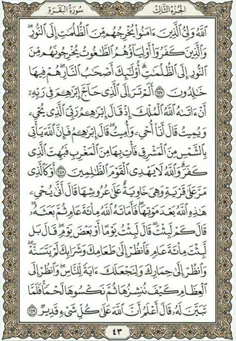 سُورَةُ البَقَرَةِ الجُزْءُ الثَّالِثُ
اللَّهُ وَلِيُّ الَّذِينَ ءَامَنُوا يُخْرِجُهُم مِّنَ الظُّلُمَاتِ إِلَى النُّورِ
وَالَّذِينَ كَفَرُوا أَوْلِيَاؤُهُمُ الطَّاغُوتُ يُخْرِجُونَهُم مِّنَ
النُّورِ إِلَى الظُّلُمَاتِ أُولَٰئِكَ أَصْحَابُ النَّارِ هُمْ فِيهَا
خَالِدُونَ ٢٥٧ أَلَمْ تَرَ إِلَى الَّذِي حَاجَّ إِبْرَاهِيمَ فِي رَبِّهِ
أَنْ ءَاتَاهُ اللَّهُ الْمُلْكَ إِذْ قَالَ إِبْرَاهِيمُ رَبِّيَ الَّذِي يُحْيِي
وَيُمِيتُ قَالَ أَنَا أُحْيِي وَأُمِيتُ قَالَ إِبْرَاهِيمُ فَإِنَّ اللَّهَ يَأْتِي
بِالشَّمْسِ مِنَ الْمَشْرِقِ فَأْتِ بِهَا مِنَ الْمَغْرِبِ فَبُهِتَ الَّذِي
كَفَرَ وَاللَّهُ لَا يَهْدِي الْقَوْمَ الظَّالِمِينَ ٢٥٨ أَوْ كَالَّذِي
مَرَّ عَلَىٰ قَرْيَةٍ وَهِيَ خَاوِيَةٌ عَلَىٰ عُرُوشِهَا قَالَ أَنَّىٰ يُحْيِي
هَٰذِهِ اللَّهُ بَعْدَ مَوْتِهَا فَأَمَاتَهُ اللَّهُ مِائَةَ عَامٍ ثُمَّ بَعَثَهُ
قَالَ كَمْ لَبِثْتَ قَالَ لَبِثْتُ يَوْمًا أَوْ بَعْضَ يَوْمٍ قَالَ بَل
لَّبِثْتَ مِائَةَ عَامٍ فَانظُرْ إِلَىٰ طَعَامِكَ وَشَرَابِكَ لَمْ يَتَسَنَّهْ
وَانظُرْ إِلَىٰ حِمَارِكَ وَلِنَجْعَلَكَ ءَايَةً لِّلنَّاسِ وَانظُرْ إِلَى
الْعِظَامِ كَيْفَ نُنشِزُهَا ثُمَّ نَكْسُوهَا لَحْمًا فَلَمَّا
تَبَيَّنَ لَهُ قَالَ أَعْلَمُ أَنَّ اللَّهَ عَلَىٰ كُلِّ شَيْءٍ قَدِيرٌ ٢٥٩
٤٣